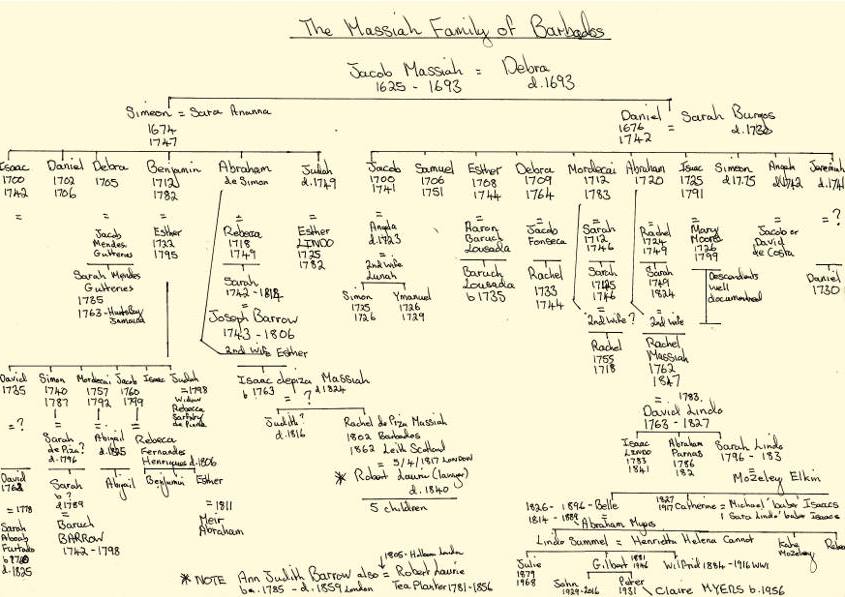 The Massiah Family of Barbados
Jacob Massiah = Debra
1625 - 1693 d.1693
Simeon = Sara Ananna
1674
1747
Daniel = Sarah Burgos
1676 d.1730
1742
Isaac
1700
1742
=
Daniel
1702
1706
Debra
1705
=
Jacob
Mendes
Gutteres
Sarah Mendes
Gutteres
1735
1763
Jamaica
Benjamin
1712
1782
=
Esther
1722
1795
Abraham
de Simon
=
Rebecca
1718
1749
Sarah
1742 - 1812
=
Joseph Barrow
1743 - 1806
2nd Wife Esther
Judah
d.1749
=
Esther
LINDO
1725
1782
Jacob
1700
1741
=
Angela
d.1723
=
2nd Wife
Lunah
Simon
1725
1726
Ymanuel
1726
1729
Samuel
1706
1751
Esther
1708
1744
=
Aaron
Baruch
Lousada
Baruch
Lousada
b 1735
Debra
1709
1764
=
Jacob
Fonseca
Rachel
1733
1744
Mordecai
1712
1783
=
Sarah
1712
1746
Sarah
1746
2nd Wife ?
Rachel
1755
1718
Abraham
1720
=
Rachel
1724
1749
Sarah
1749
1824
=
2nd Wife
Rachel
Massiah
1762
1847
= 1783.
David Lindo
1763 - 1827
Isaac
1725
1791
=
Mary
Moore
1726
1799
Descendants
well
documented
Simeon
d 1775
Angel
d 1742
=
Jacob or
David
de Costa
Jeremiah
d.1741
= ?
Daniel
1730
David
1735
= ?
David
1762
= 1778
Sarah
Aboab
Furtado
d.1825
Simon
1740
1787
=
Sarah
de Piza?
d.1796
Sarah
b ?
d 1789
=
Baruch
BARROW
1742 - 1798
Mordecai
1757
1792
=
Abigail
d.1825
Abigail
Jacob
1760
1799
=
Rebecca
Fernandes
Henriques d.1806
Benjamin Esther
= 1811
Meir
Abraham
Isaac
Judah
= 1798
Widow
Rebecca
de Piza
Isaac depiza Massiah
b 1763 = ? d 1824
Judith?
d.1816
Rachel de Piza Massiah
1802 Barbados
1862 Leith Scotland
= 5/4/1817 LONDON
* Robert Laurie (lawyer)
d.1840
5 children
Isaac
LINDO
1783
1841
Abraham
Parnas
1786
182
Sarah Lindo
1796 - 183
=
Mozeley Elkin
1826 - 1896 - Belle
1814 - 1889 =
Abraham Myers
1827
1917 Catherine = Michael 'baber' Isaacs
1 Sara Lindo 'baber' Isaacs
Lindo Summel = Henrietta Helena Cannot
Kate
Mozeley
Rebe
Julie
1879
1968
Gilbert 1881
Wilfrid 1884 - 1916 WW1
John
1929-2016
Peter
1931
Claire MYERS b.1956
* NOTE Ann Judith Barrow also = Robert Laurie
1805 - Holborn London
1785 - d.1859 London Tea Planter 1781 - 1856